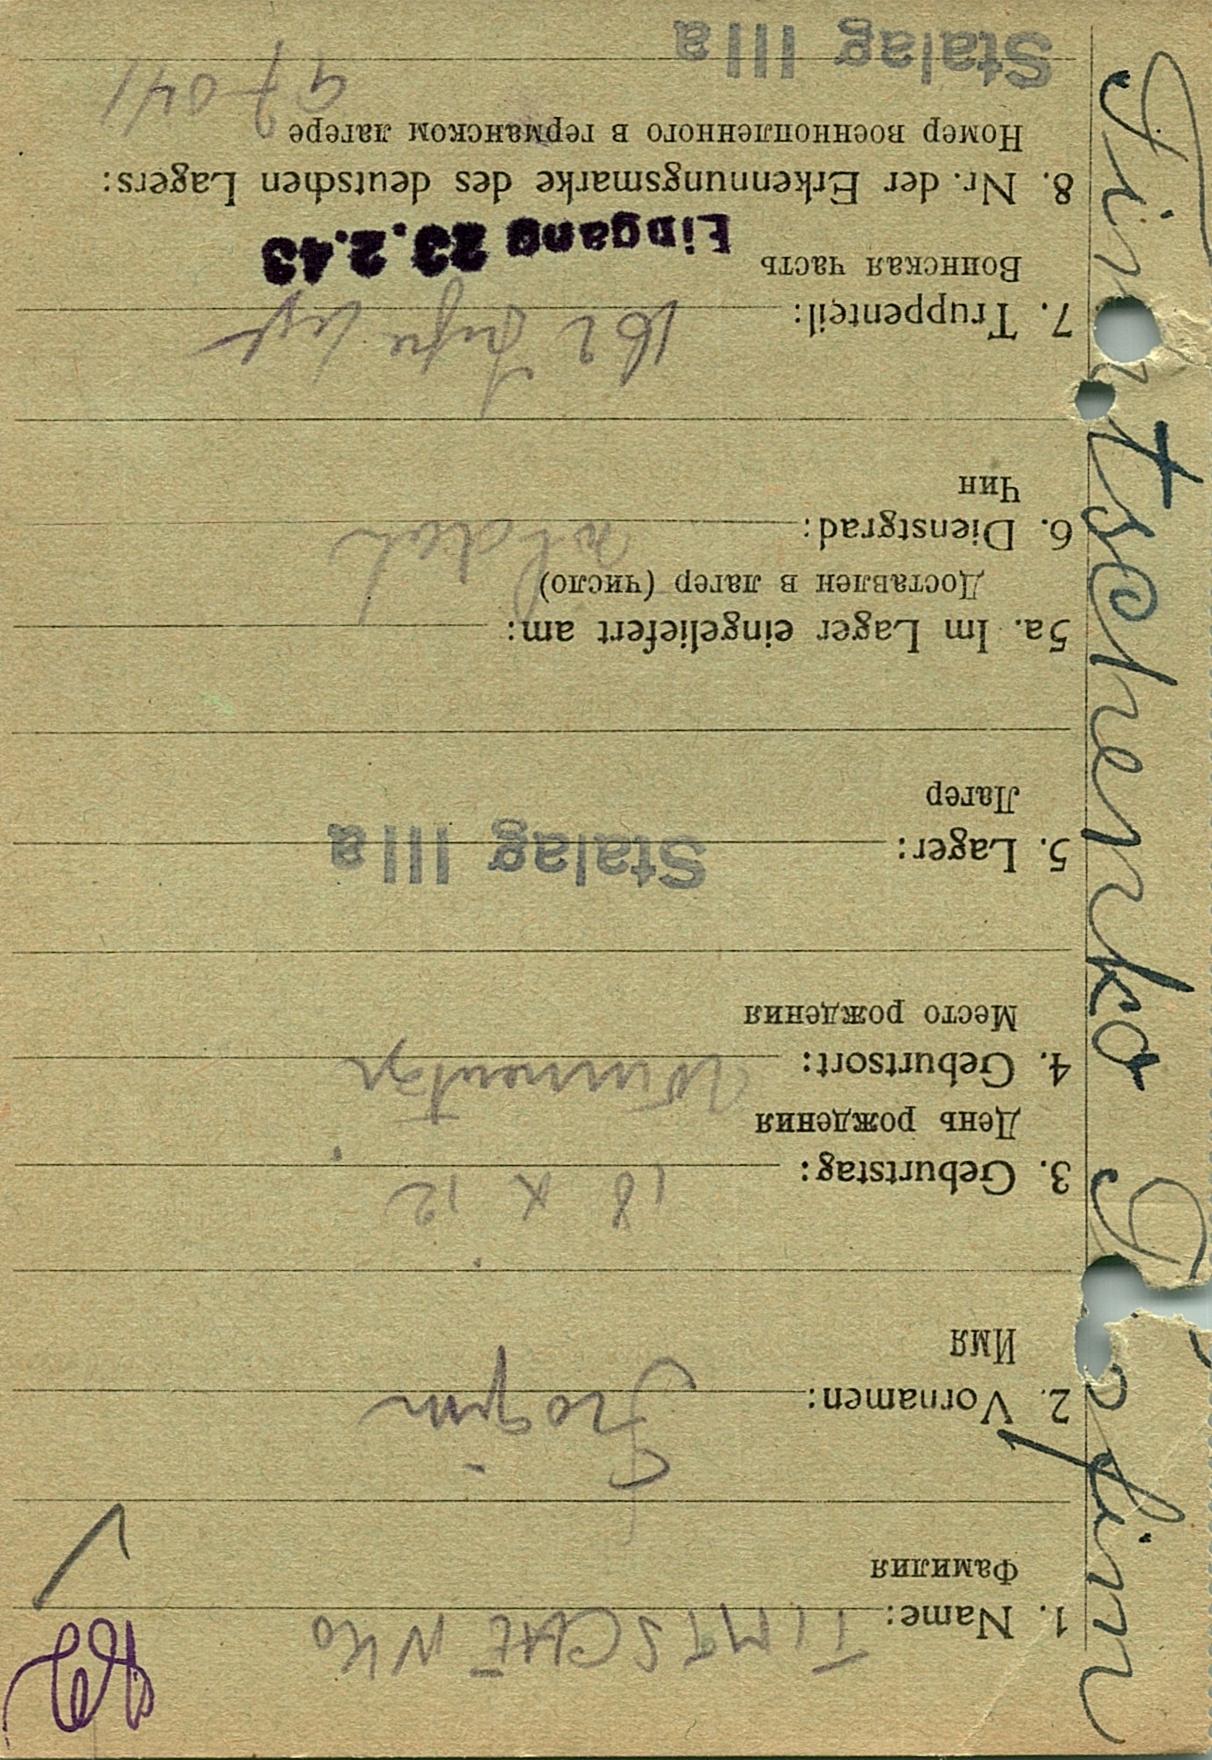 1. Name: TIMTSCHENKO
Фамилия
2. Vornamen:
Имя
3. Geburtstag: 18 X 12
День рождения
4. Geburtsort:
Место рождения
5. Lager: Stalag IIIa
Лагер
5a. Im Lager eingeliefert am:
Доставлен в лагер (число)
6. Dienstgrad: Soldat
Чин
7. Truppenteil: 162
Воинская часть Eingang 23.2.43
8. Nr. der Erkennungsmarke des deutschen Lagers:
Номер военнопленного в германском лагере
97041
Stalag IIIa
Timtschenko